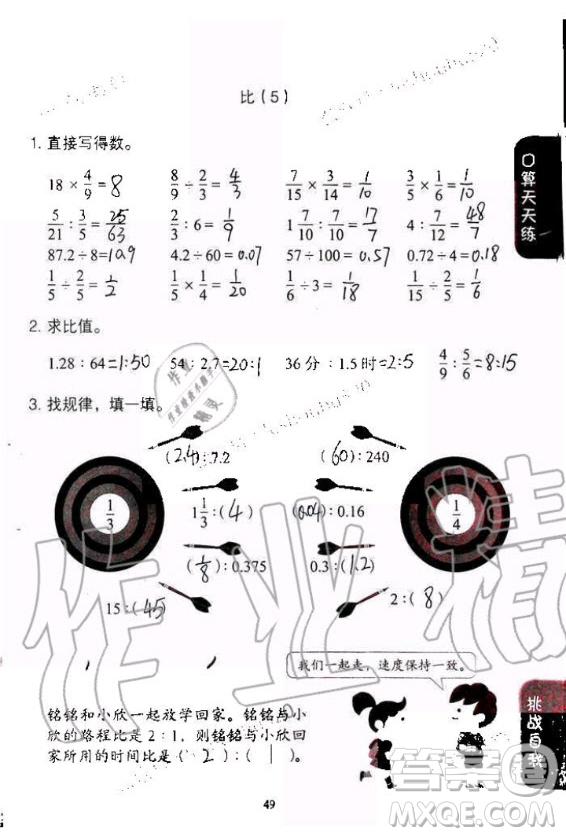 比（5）
口算天天练
1. 直接写得数。
18 × 4/9 = 8  8/9 ÷ 2/3 = 4/3  7/15 × 3/14 = 1/10  3/5 × 1/6 = 1/10
5/21 : 3/5 = 25/63  2/3 : 6 = 1/9  1 7/10 : 7/10 = 17/7  4 : 7/12 = 48/7
87.2 ÷ 8 = 10.9  4.2 ÷ 60 = 0.07  57 ÷ 100 = 0.57  0.72 ÷ 4 = 0.18
1/5 ÷ 2/5 = 1/2  1/5 × 1/4 = 1/20  1/6 ÷ 3 = 1/18  1/15 ÷ 2/5 = 1/6
2. 求比值。
1.28 : 64 = 1:50  54 : 2.7 = 20:1  36 分 : 1.5 时 = 2:5  4/9 : 5/6 = 8:15
3. 找规律，填一填。
(2.4) : 7.2  (60) : 240
1/3  1 1/3 : (4)  (0.04) : 0.16  1/4
(1/8) : 0.375  0.3 : (1.2)
15 : (45)  2 : (8)
我们一起走，速度保持一致。
挑战自我
铭铭和小欣一起放学回家。铭铭与小
欣的路程比是 2 : 1，则铭铭与小欣回
家所用的时间比是（2）:（1）。
49
作业精灵
答案圈
MXQE.COM